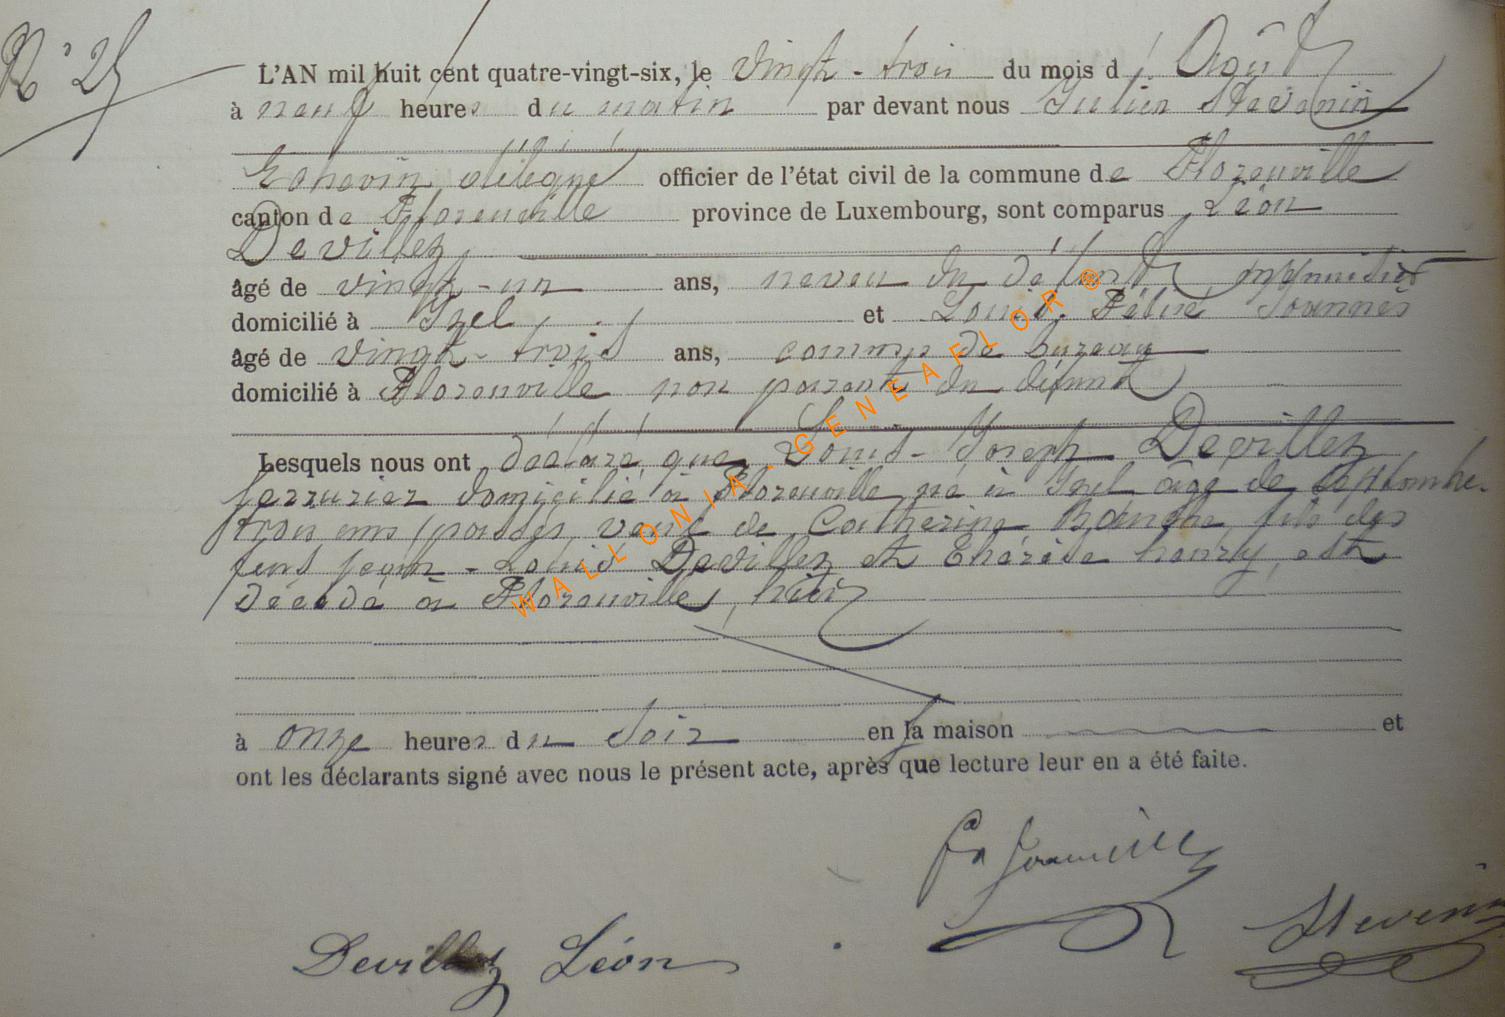 N° 25
L'AN mil huit cent quatre-vingt-six, le vingt-trois du mois d' Août
à neuf heures du matin par devant nous Julien Stevenin
Echevin délégué officier de l'état civil de la commune de Florenville
canton de Florenville province de Luxembourg, sont comparus Léon
Devillez
âgé de vingt-un ans, neveu du défunt menuisier
domicilié à Izel et Louis Félix Joannès
âgé de vingt-trois ans, commis de bureau
domicilié à Florenville non parent du défunt
Lesquels nous ont déclaré que Louis-Joseph Devillez
serrurier domicilié à Florenville né à Izel âgé de septante
trois ans passés veuf de Catherine fils des
feus Jean-Louis Devillez et Thérèse henry, est
décédé à Florenville, hier
à onze heures du soir en la maison et
ont les déclarants signé avec nous le présent acte, après que lecture leur en a été faite.
Devillez Léon
Stevenin
WALLONIA-GENEAFLOR®